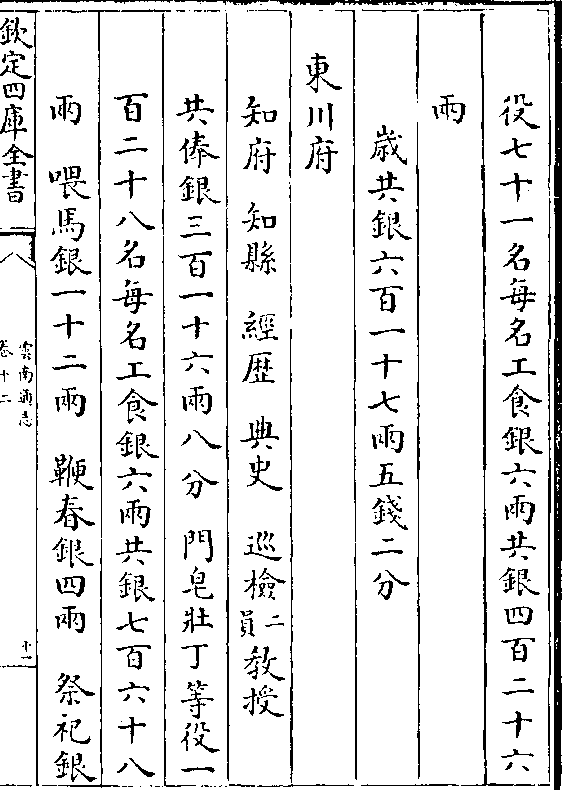 役七十一名每名工食銀六兩共銀四百二十六
兩
歲共銀六百一十七兩五錢二分
東川府
知府 知縣 經歷 典史 巡檢二員 教授
共俸銀三百一十六兩八分 門皂壯丁等役一
百二十八名每名工食銀六兩共銀七百六十八
兩 喂馬銀一十二兩 鞭春銀四兩 祭祀銀
欽定四庫全書
雲南通志
卷十二
十一